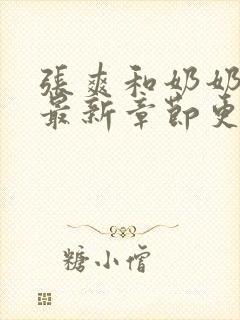 張爽和奶奶
最新章節更
糖小僧